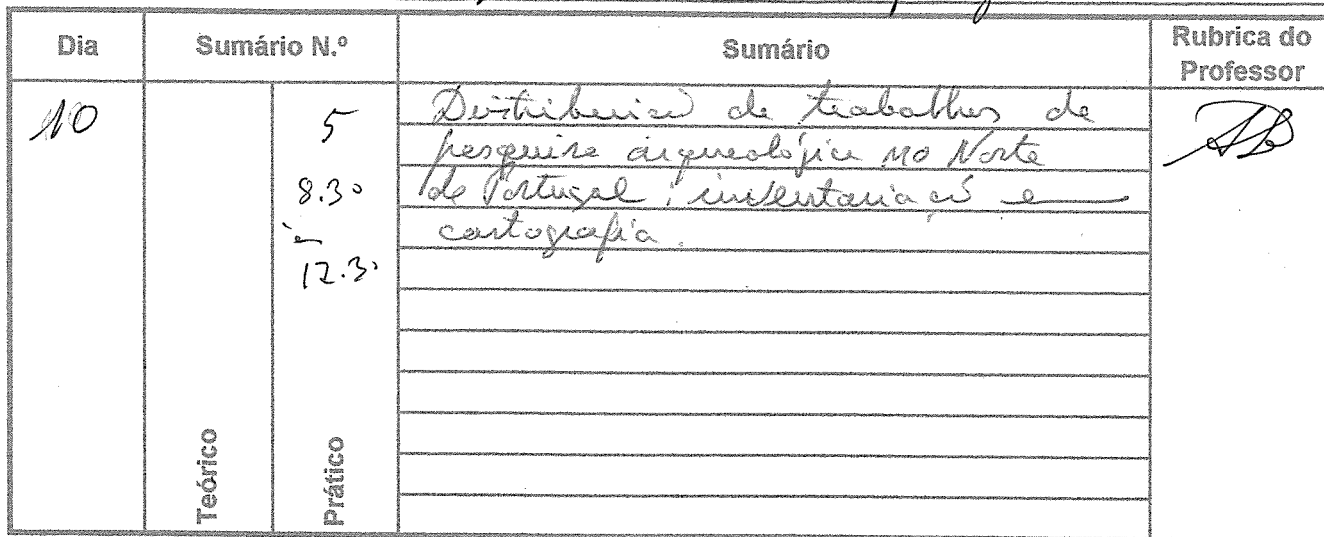 Dia
Sumário N.º
Sumário
Rubrica do
Professor
10
5
8.30
às
12.30
Distribuição de trabalhos de
pesquisa arqueológica no Norte
de Portugal: inventariação e
cartografia.
Teórico
Prático